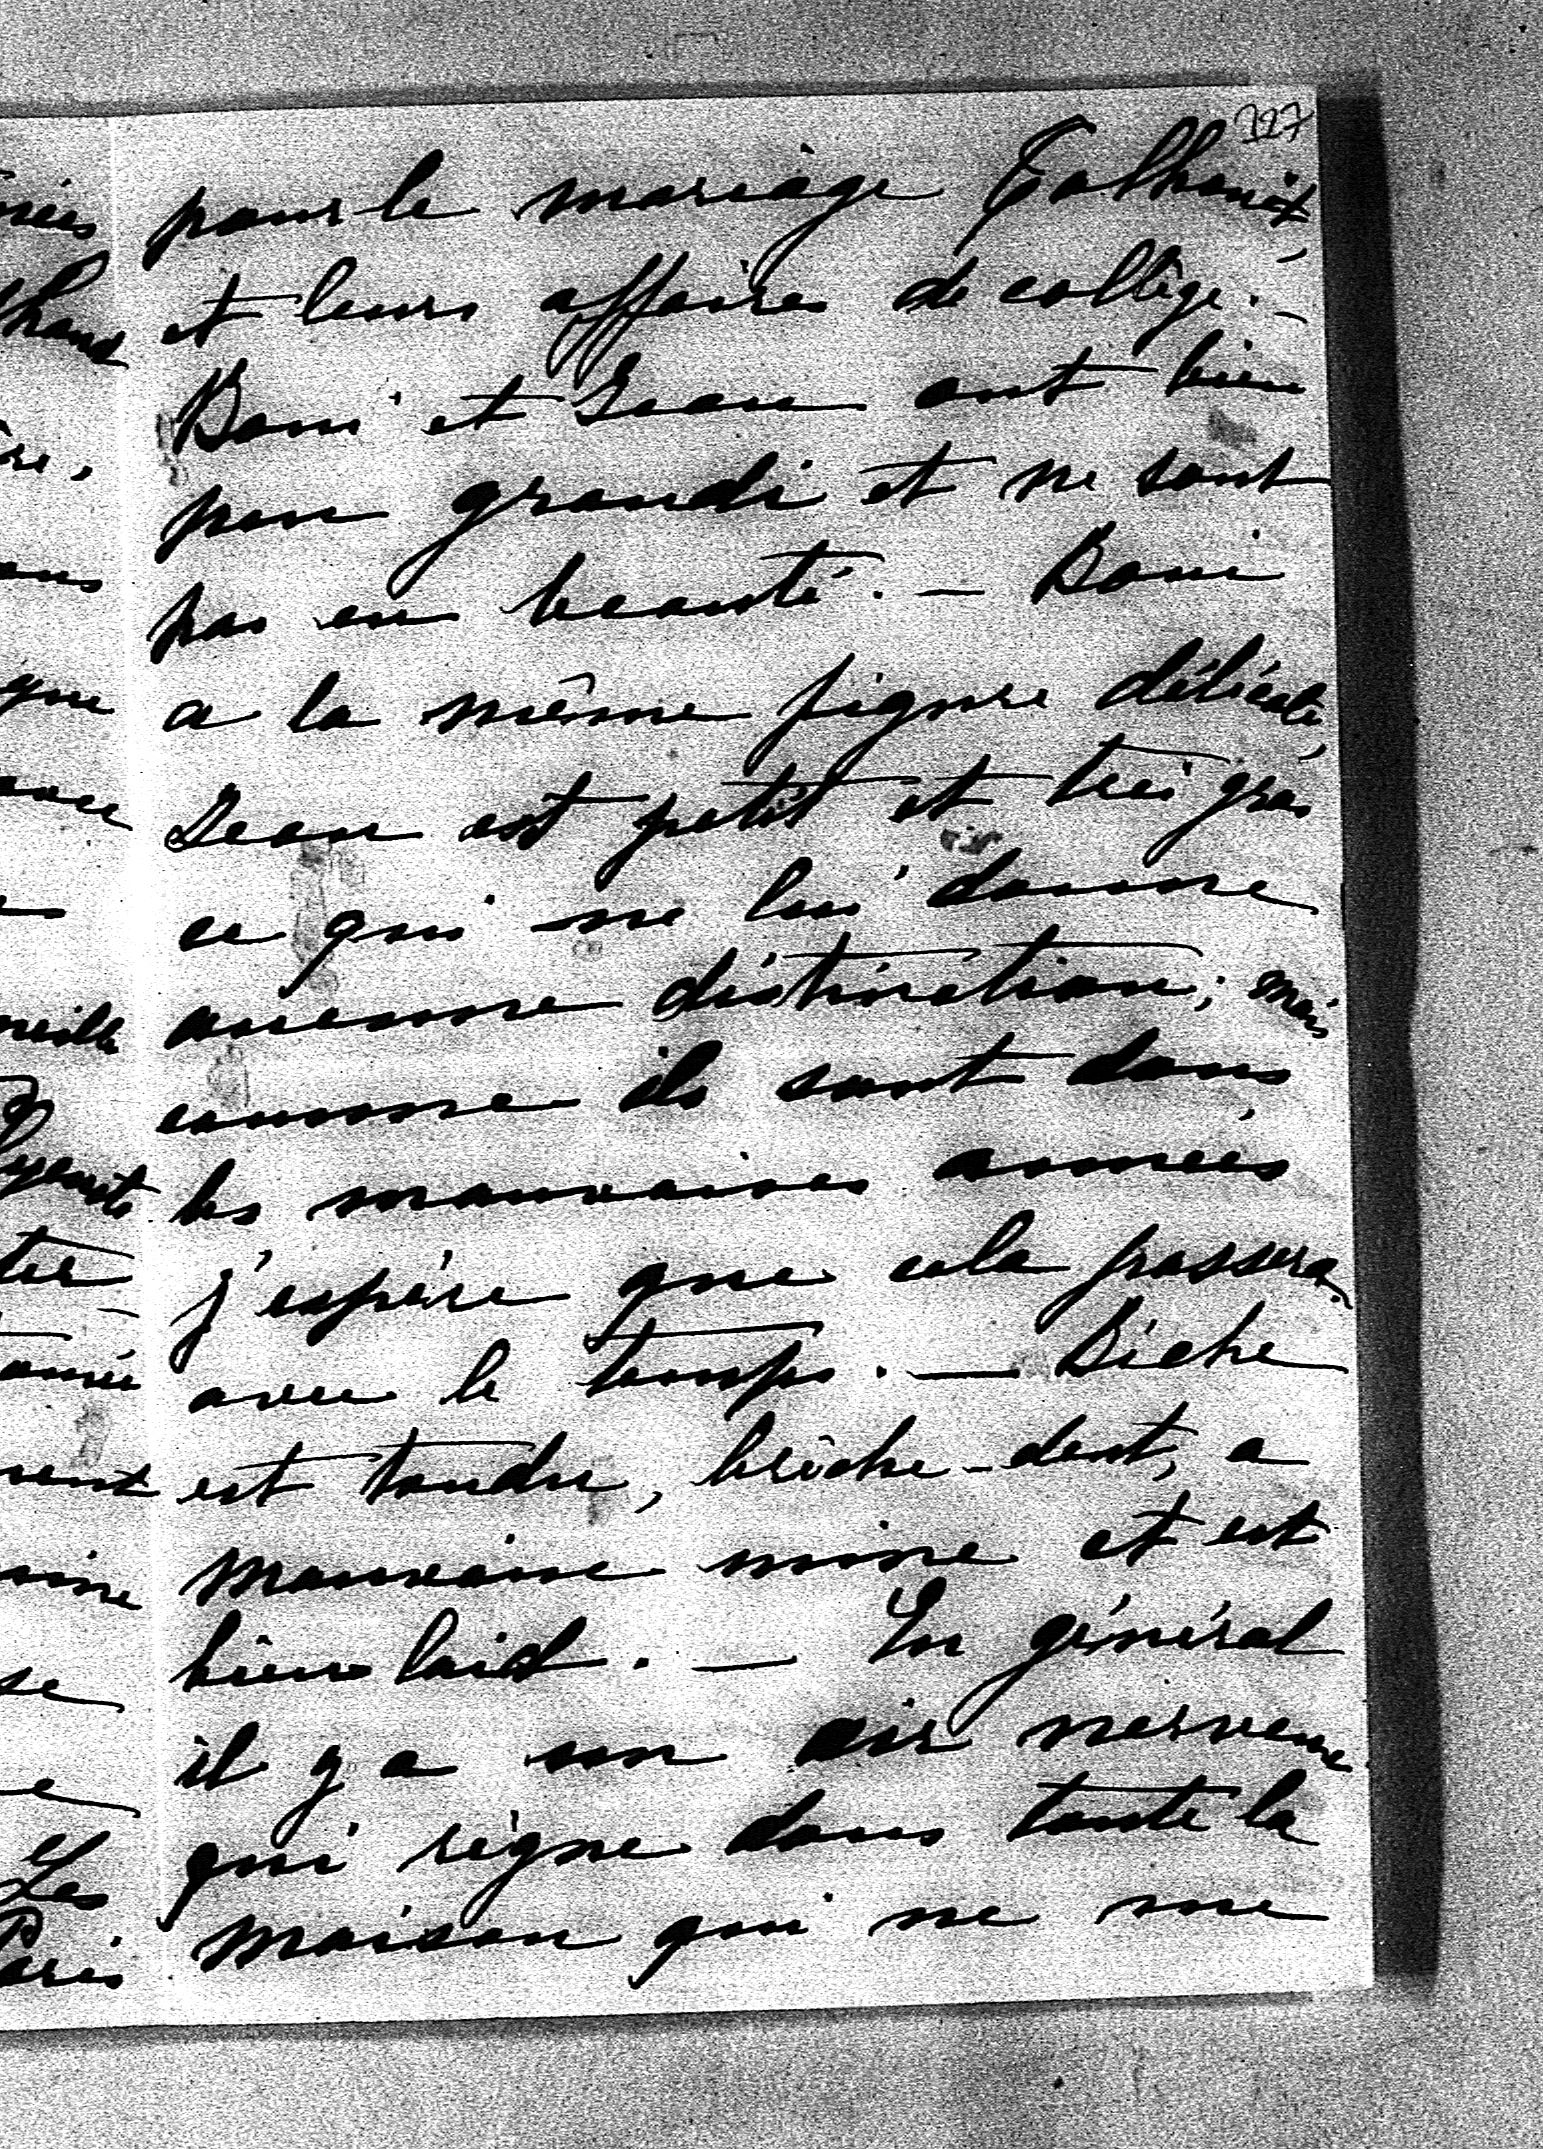 727
pour le mariage Talhouët,
et leurs affaires de collège. _
Boni et Jean ont bien
peu grandi et ne sont
pas en beauté. — Boni
a la même figure délicate,
Jean est petit et très gras
ce qui ne lui donne
aucune distinction; mais
comme ils sont dans
les mauvaises années,
j'espère que cela passera
avec le temps. — Biche
est tondu, brèche-dent, a
mauvaise mine et est
bien laid. — En général
il y a un air nerveux
qui règne dans toute la
maison qui ne me